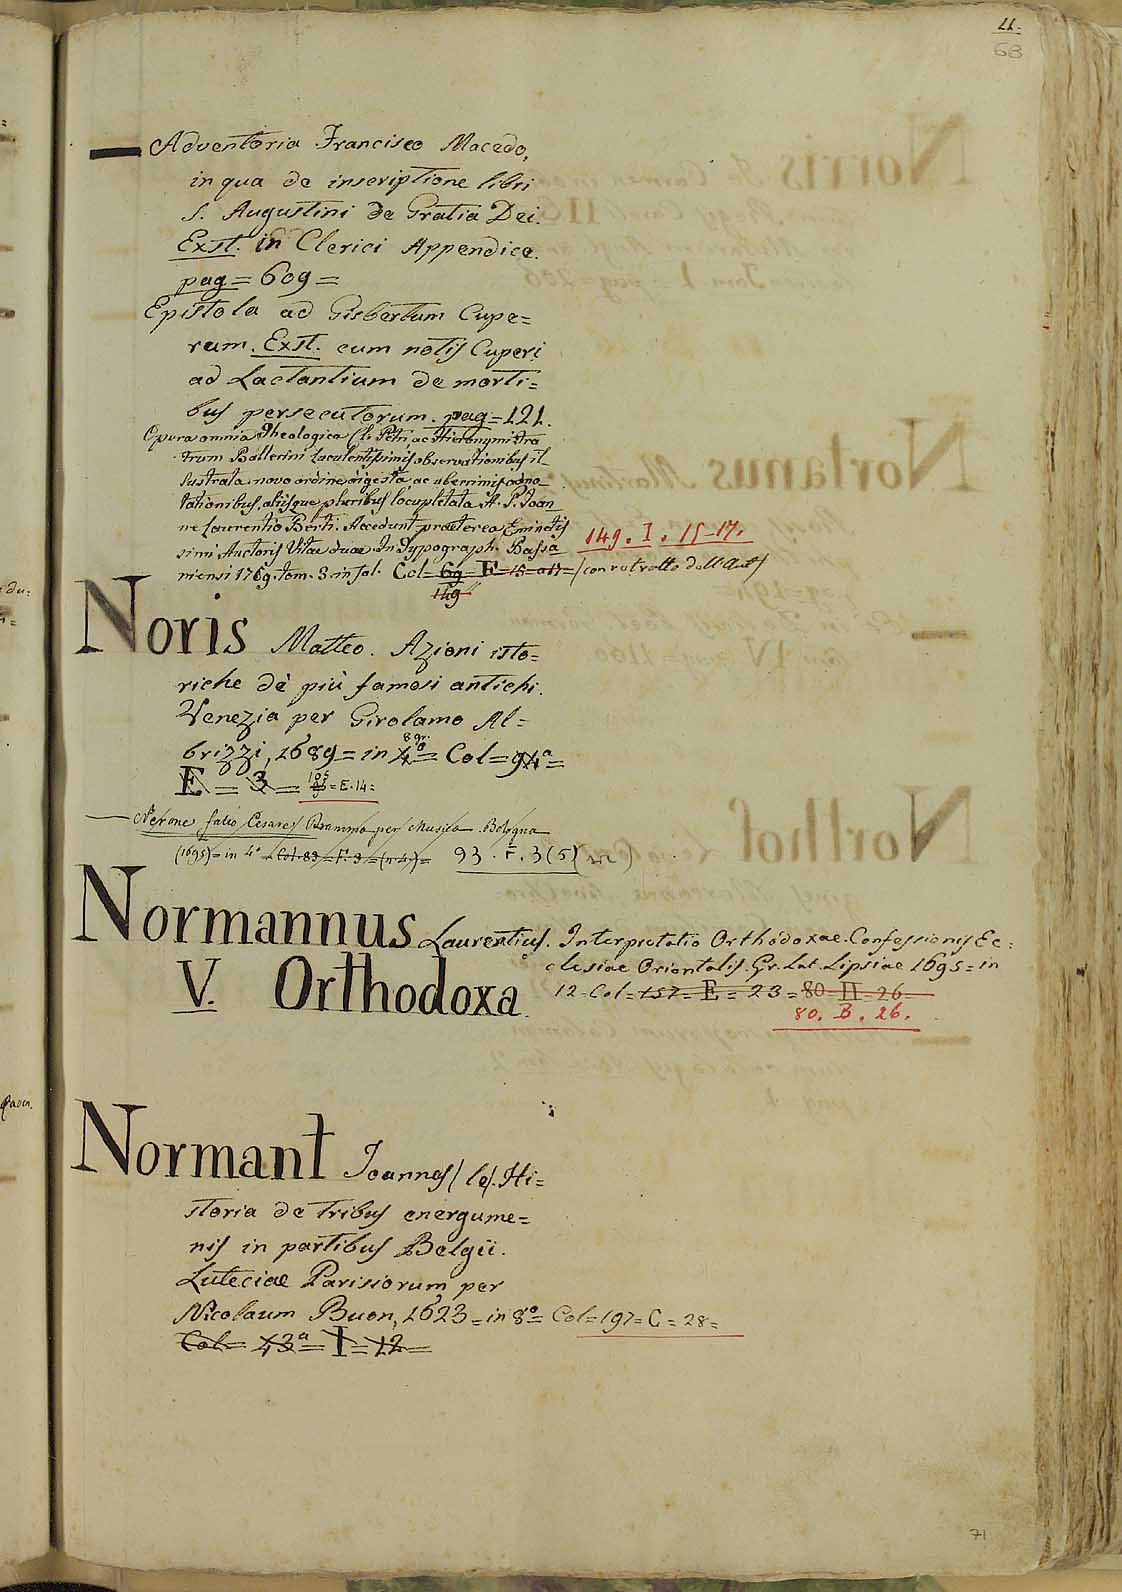 11.
68
Adventoria Francisco Macedo,
in qua de inscriptione libri
S. Augustini de Gratia Dei.
Exst. in Clerici Appendice.
pag = 609 =
Epistola ad Gisbertum Cupe=
rum. Exst. cum notis Cuperi
ad Lactantium de morti=
bus persecutorum. pag = 121.
Opera omnia Theologica Petri, ac Hieronymi Fra
trum Ballerini luculentissimis observationibus il_
lustrata novo ordine digesta, ac uberrimis adno_
tationibus, aliisque pluribus locupletata A. P. Joan
ne Laurentio Berti. Accedunt praeterea Eminetis
simi Auctoris Vitae duae. In Typograph. Bassa
149. I. 15-17.
niensi 1769. tom. 3. in fol. Col = 69 = F = 15 = a 17 = / con ritratto dell'Aut/
149
Noris Matteo. Azioni isto=
riche dè più famosi antichi.
Venezia per Girolamo Al=
brizzi, 1689 = in 4º = Col = 94ª =
8 gr.
E = 3 = 105 = E. 14 =
Nerone fatto Cesare / Dramma per Musica Bologna
(1695) = in 4º = Col. 83 = F. 3 = (n. 4) = 93. F. 3 (5)
Normannus Laurentius. Interpretatio Orthodoxae Confessionis Ec:
clesiae Orientalis. Gr. Lat. Lipsiae 1695 = in
V. Orthodoxa.
12 = Col = 157 = E = 23 = 80 = II = 26
80. B. 26.
Normant Joannes / le /. Hi=
storia de tribus energume=
nis in partibus Belgii.
Luteciae Parisiorum per
Nicolaum Buon, 1623 = in 8º = Col = 197 = C = 28 =
Col = 43ª = I = 12 =
71